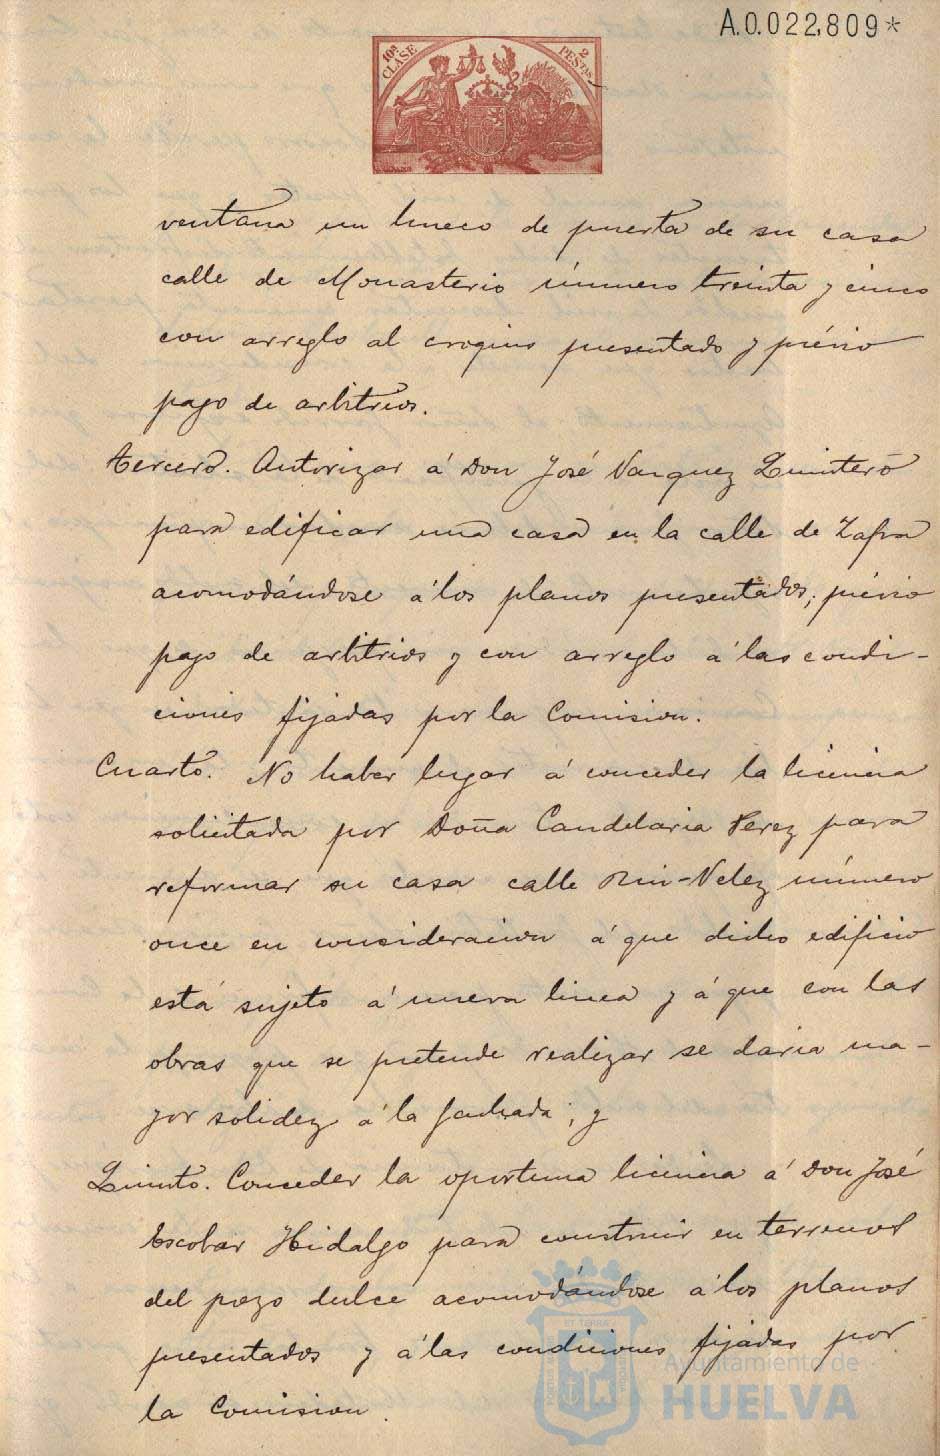 A.0.022,809*
10ª CLASE
2 PESTAS
ventana un hueco de puerta de su casa
calle de Monasterio número treinta y cinco
con arreglo al croquis presentado y prévio
pago de arbitrios.
Tercero. Autorizar á Don José Vazquez Quintero
para edificar una casa en la calle de Zafra
acomodándose á los planos presentados; prévio
pago de arbitrios y con arreglo á las condi-
ciones fijadas por la Comision.
Cuarto. No haber lugar á conceder la licencia
solicitada por Doña Candelaria Perez para
reformar su casa calle Rui-Velez número
once en consideracion á que dicho edificio
está sujeto á nueva linea y á que con las
obras que se pretende realizar se daria ma-
yor solidez á la fachada; y
Quinto. Conceder la oportuna licencia á Don José
Escobar Hidalgo para construir en terrenos
del pozo dulce acomodándose á los planos
presentados y á las condiciones fijadas por
la Comision.
Ayuntamiento de
HUELVA